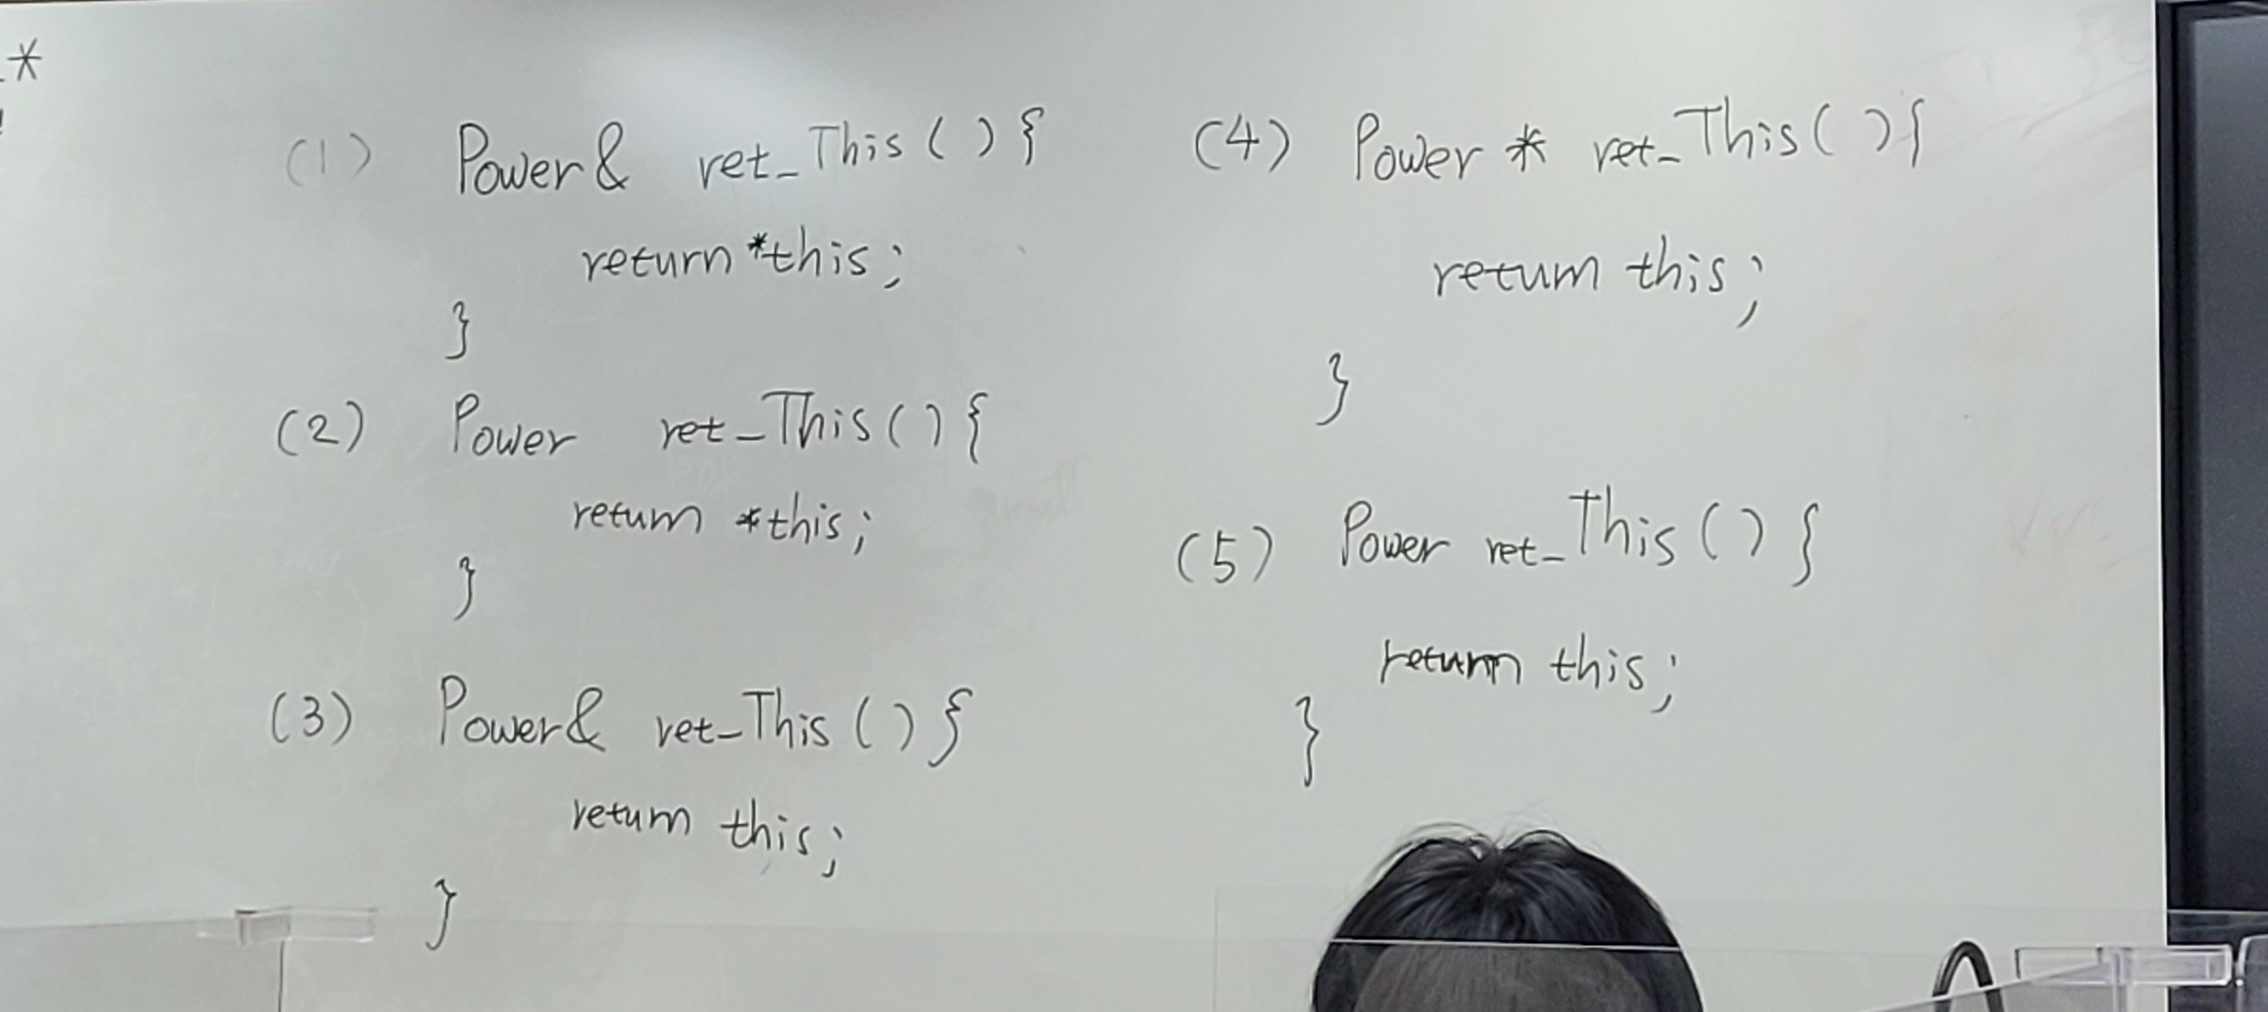 *
(1) Power& ret_This(){
return *this;
}
(2) Power ret_This(){
return *this;
}
(3) Power& ret_This(){
return this;
}
(4) Power * ret_This(){
return this;
}
(5) Power ret_This(){
return this;
}